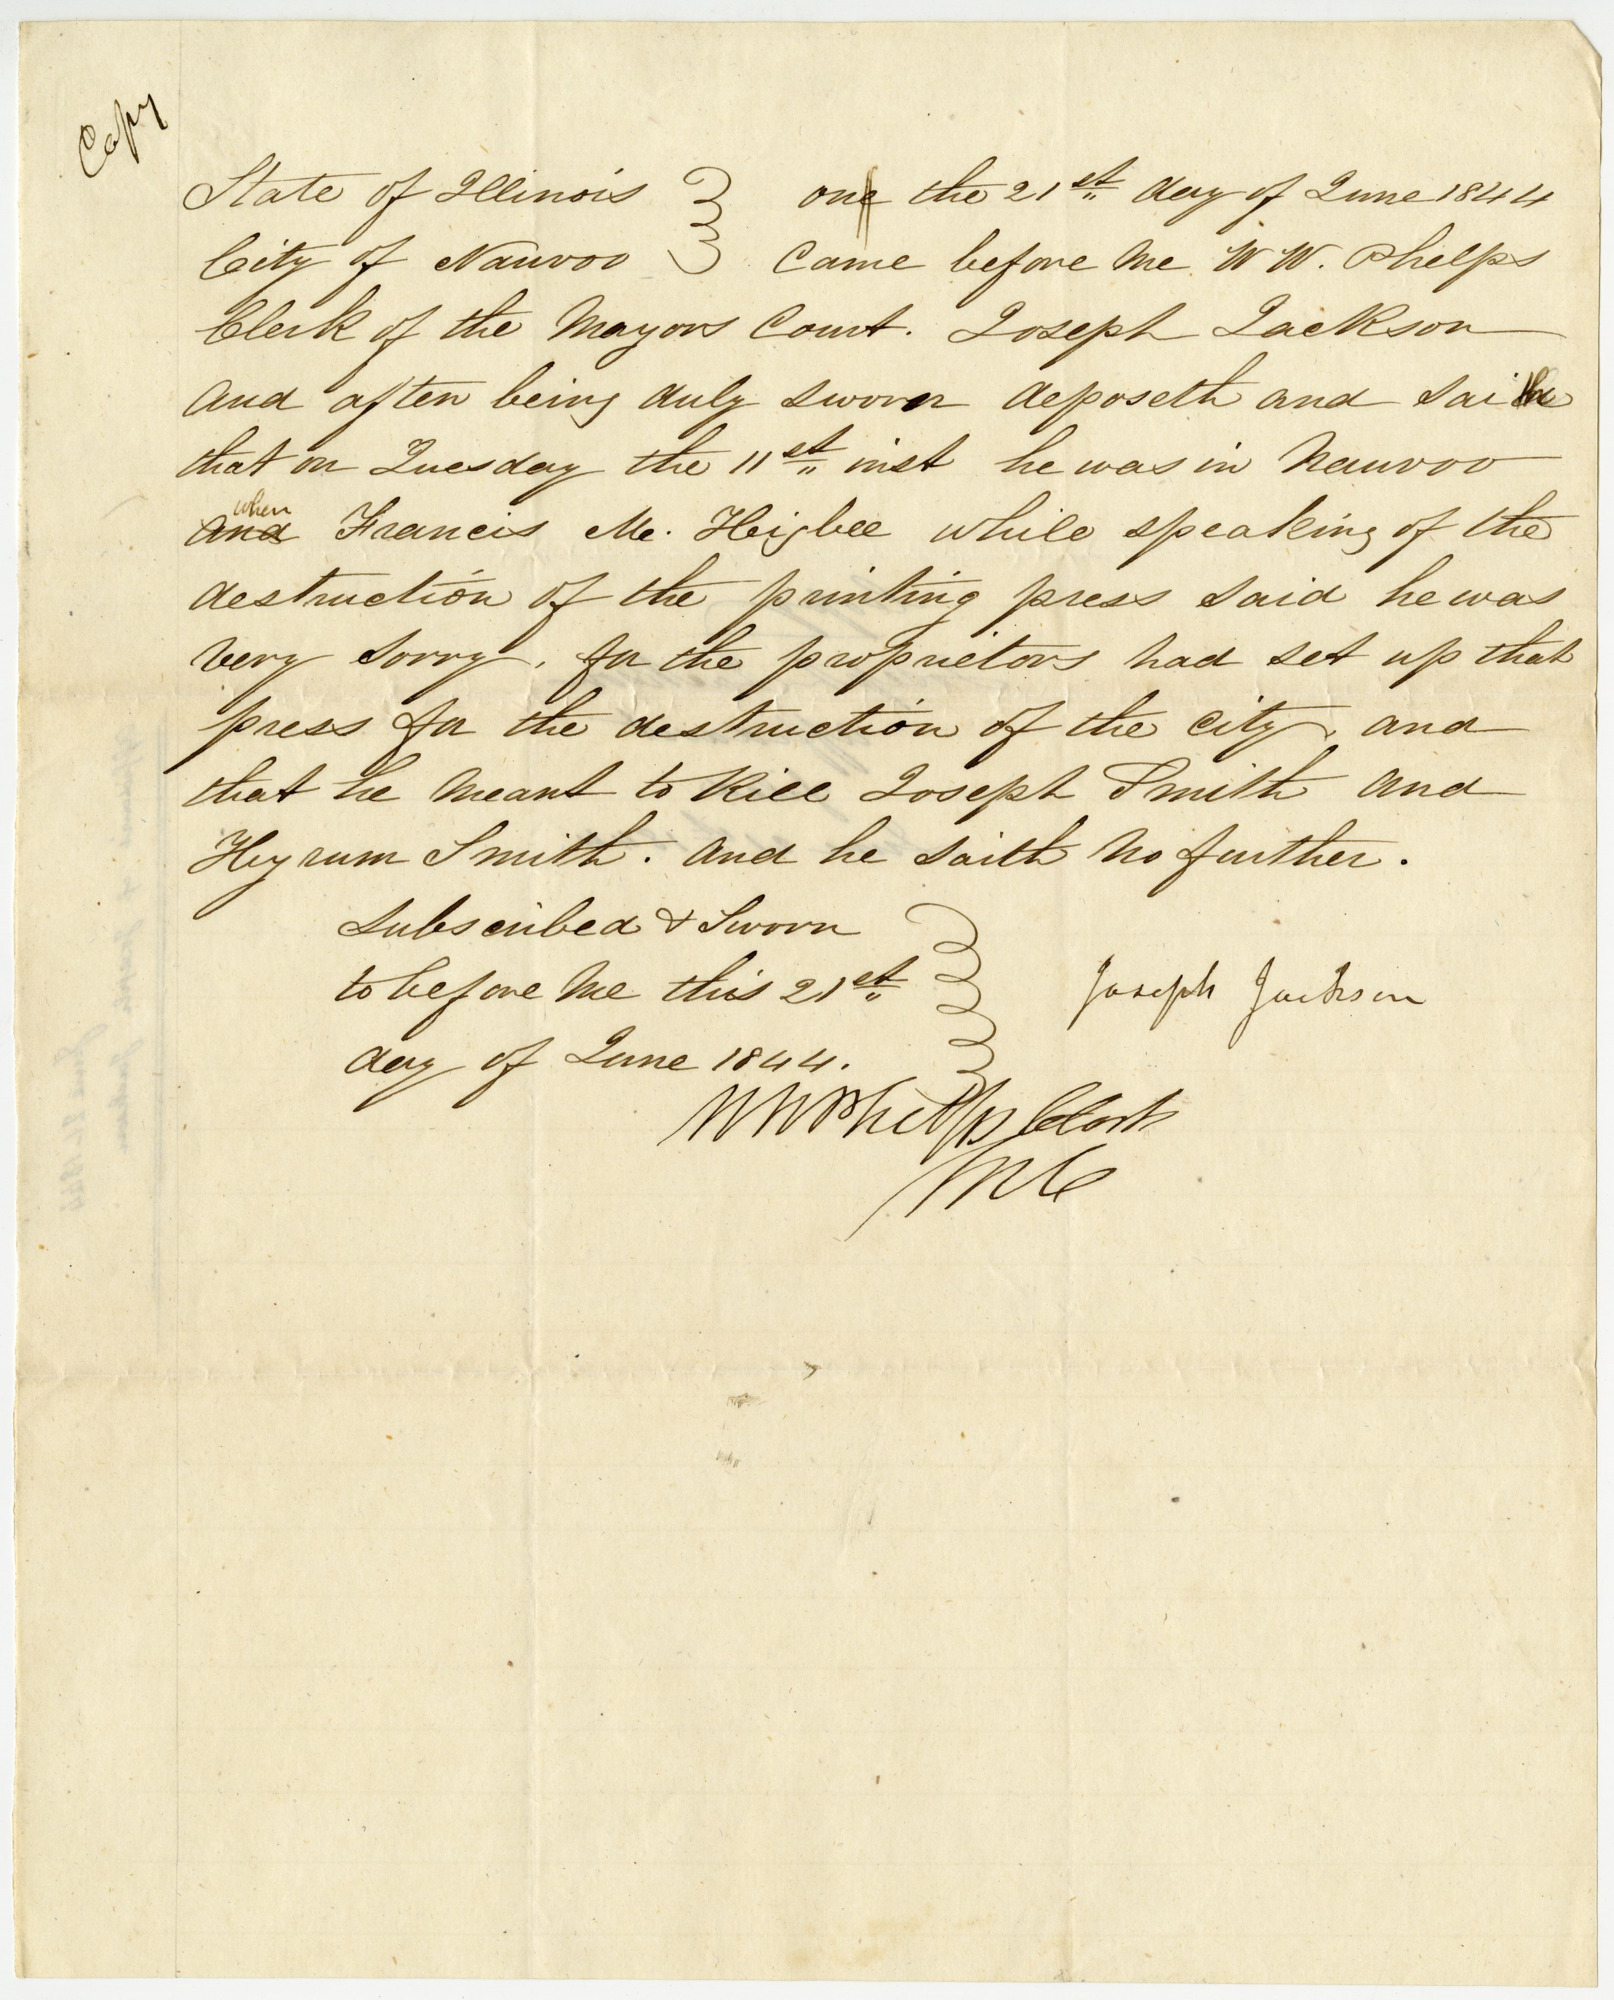 Copy
State of Illinois } on the 21st day of June 1844
City of Nauvoo } Came before me W W. Phelps
Clerk of the Mayors Court. Joseph Jackson
and after being duly sworn deposeth and saith
that on Tuesday the 11st inst he was in Nauvoo
when
and Francis M. Heigbee while speaking of the
destruction of the printing press said he was
very sorry, for the proprietors had set up that
press for the destruction of the city, and
that he meant to kill Joseph Smith and
Hyrum Smith. and he saith no further.
Subscribed & Sworn
to before me this 21st } Joseph Jackson
day of June 1844.
W W Phelps Clerk
M C